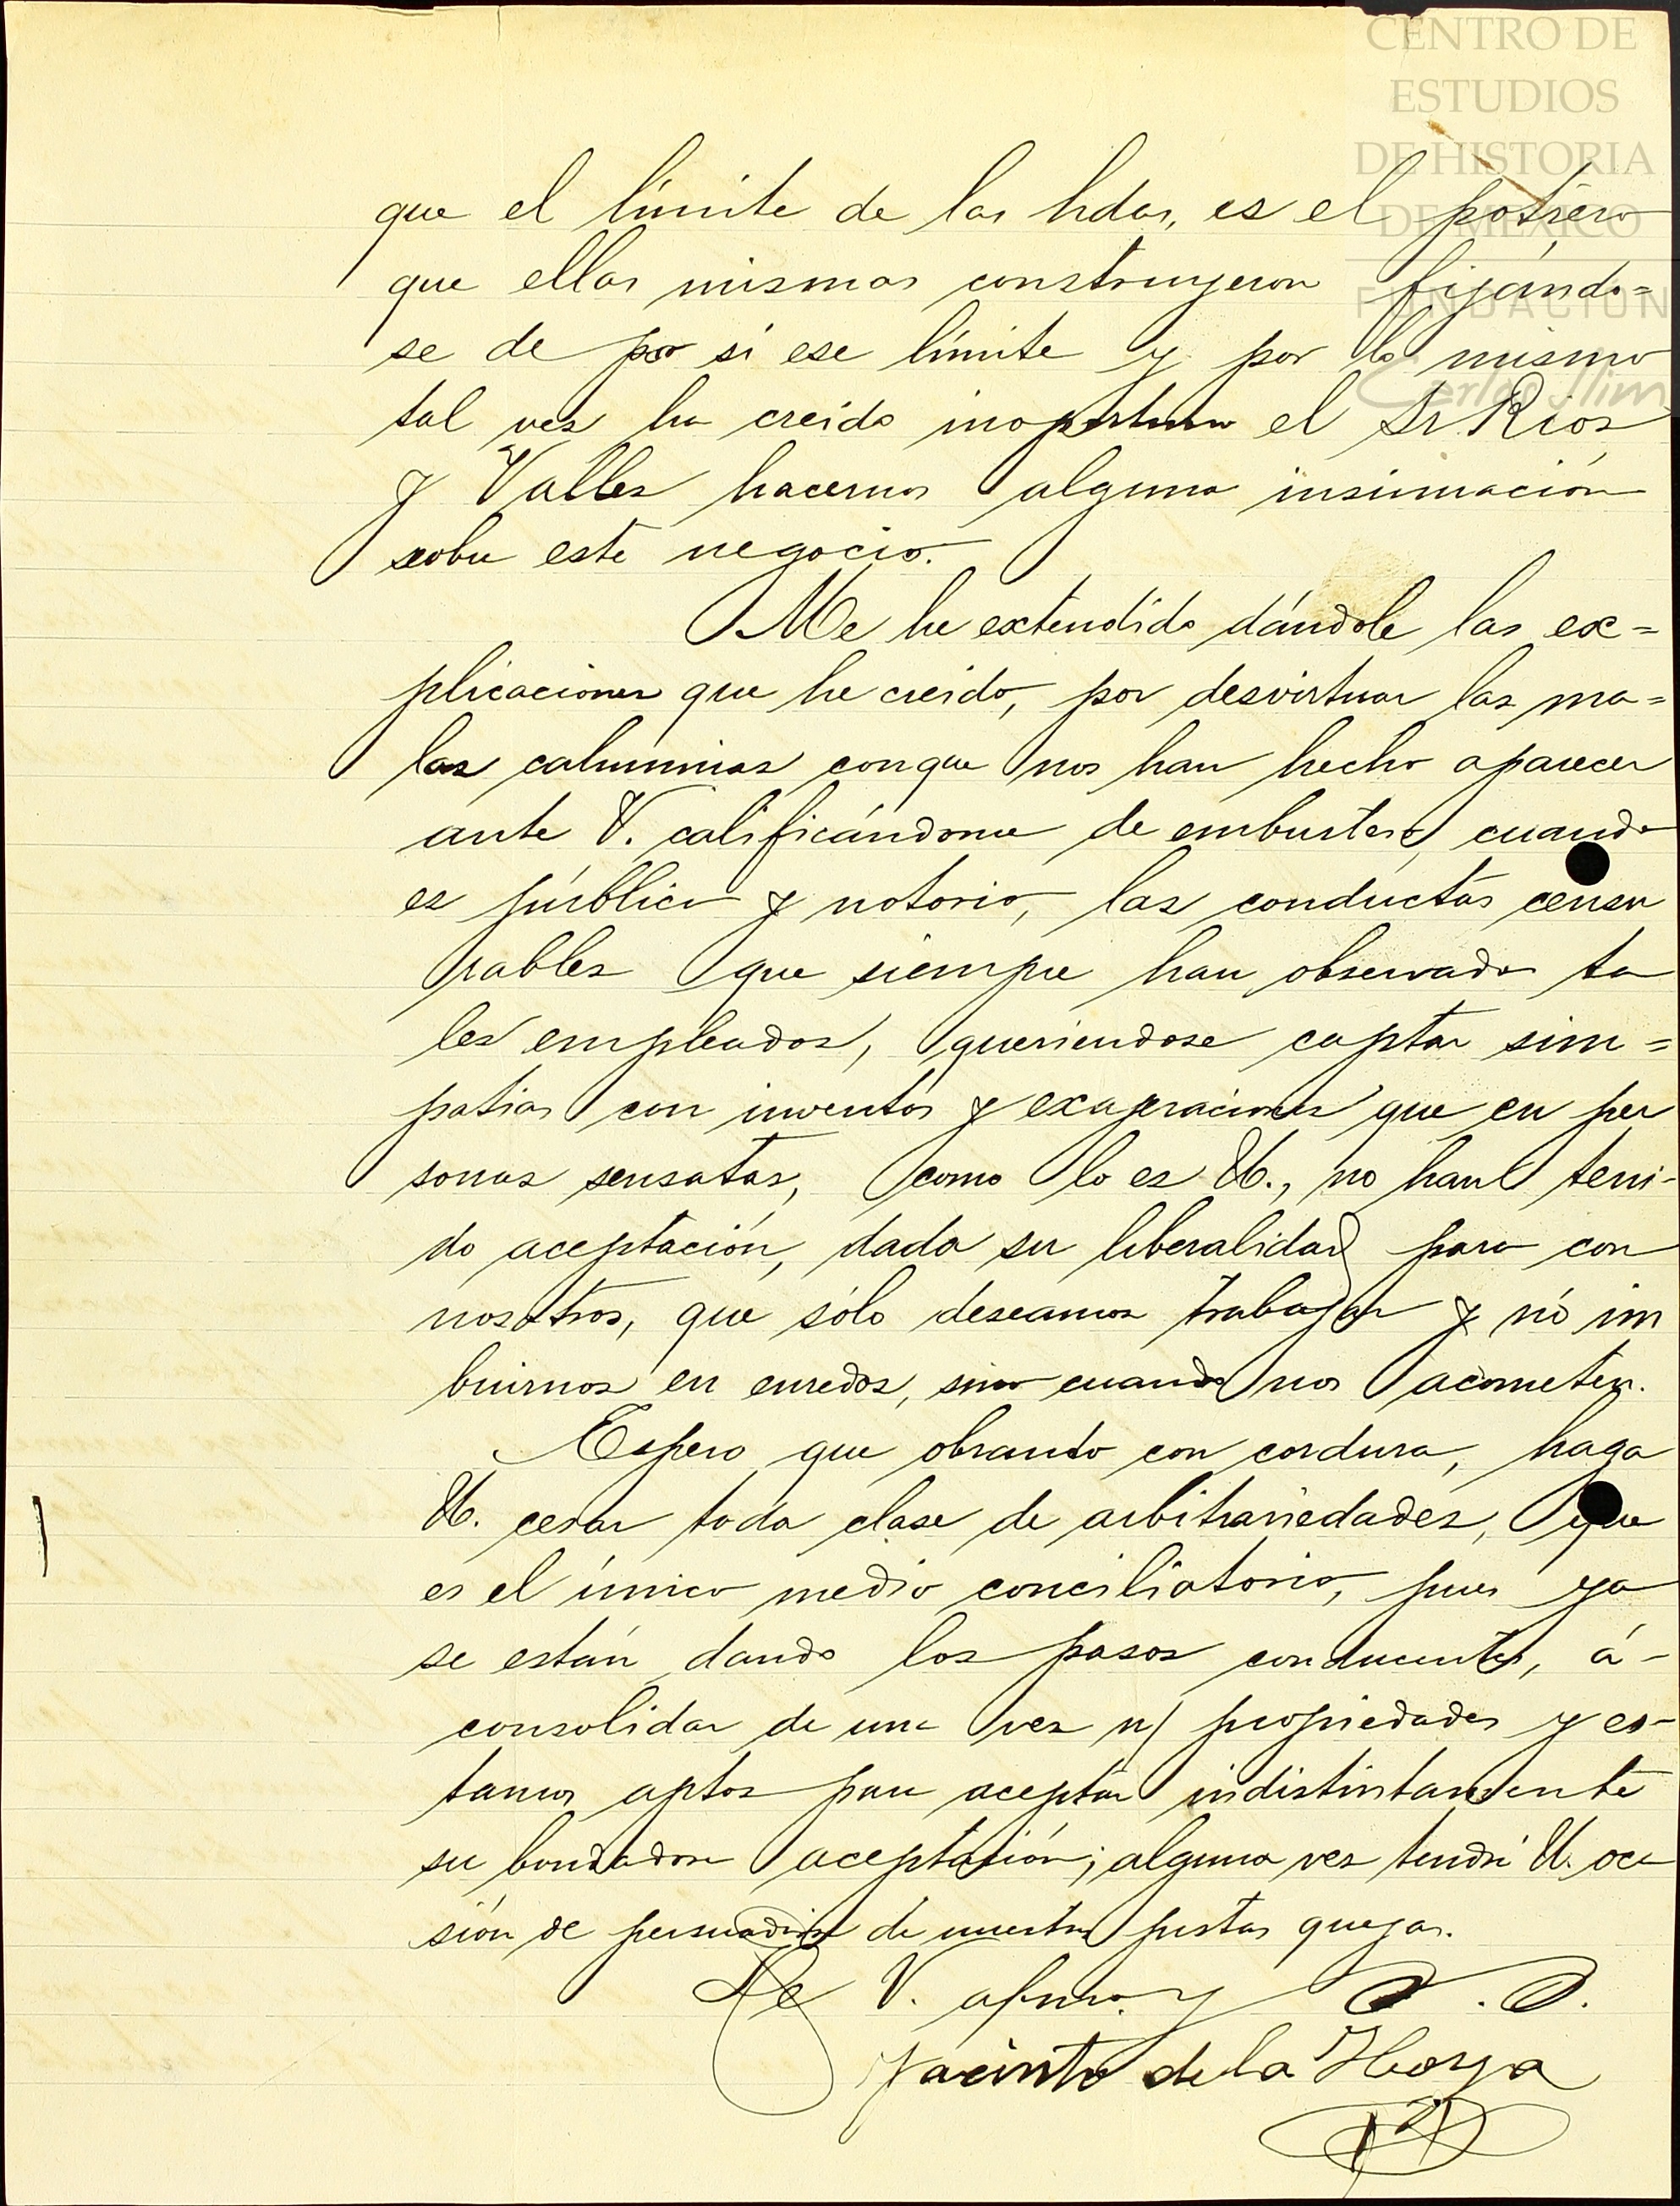 CENTRO DE
ESTUDIOS
DE HISTORIA
DE MÉXICO
FUNDACIÓN
Carlos Slim
que el límite de las hdas, es el potrero
que ellas mismas construyeron fijándo=
se de por sí ese límite y por lo mismo
tal vez ha creido inoportuno el Sr. Rios
y Valles hacernos alguna insinuación
sobre este negocio.
Me he extendido dándole las ex=
plicaciones que he creido, por desvirtuar las ma=
las calumnias conque nos han hecho aparecer
ante V. calificándome de embustero, cuando
es público y notorio, las conductas censu
rables que siempre han observado ta
les empleados, queriendose captar sim=
patias con inventos y exageraciones que en per
sonas sensatas, como lo es U., no han teni-
do aceptación, dada su liberalidad para con
nosotros, que sólo deseamos trabajar y nó im
buirnos en enredos, sino cuando nos acometen.
Espero que obrando con cordura, haga
U. cesar toda clase de arbitrariedades, que
es el único medio conciliatorio, pues ya
se están dando los pasos conducentes, á-
consolidar de una vez n/ propiedades y es-
tamos aptos para aceptar indistintamente
su bondadosa aceptación; alguna vez tendrá U. oca
sión de persuadirse de nuestras justas quejas.
De V. afmo. y S. S.
Jacinto de la Hoya